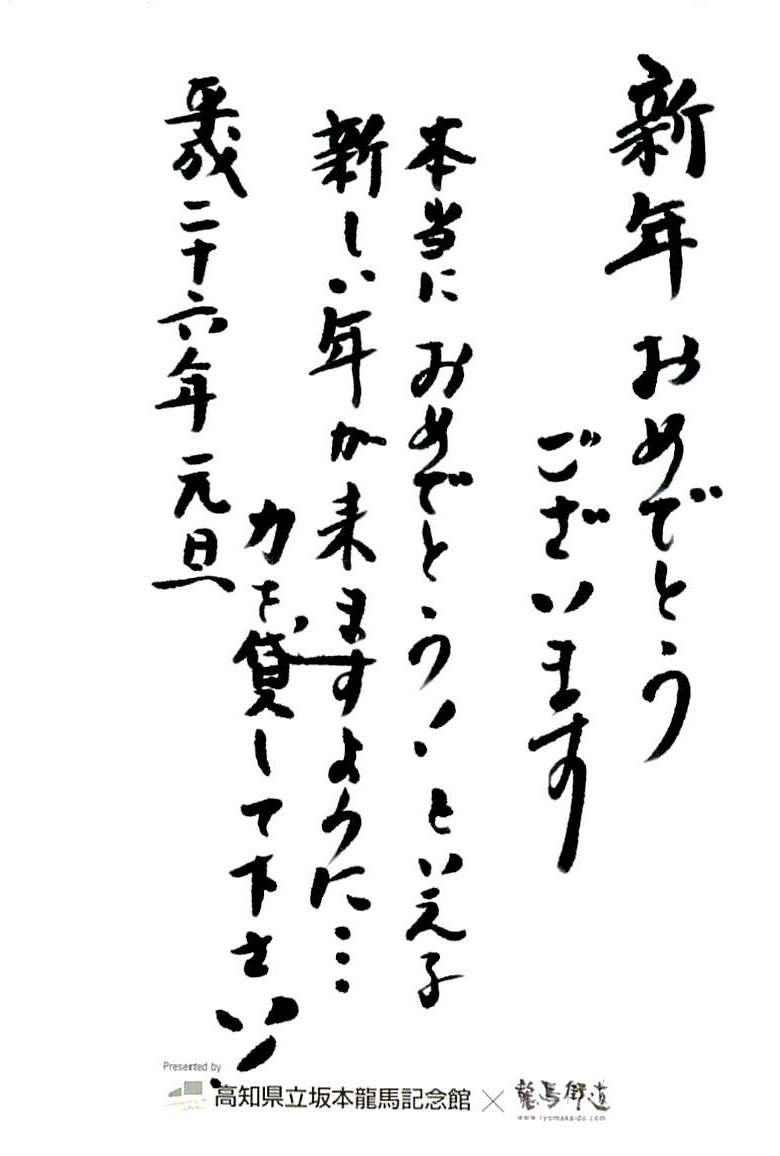 新年おめでとう
ございます
本当におめでとう!といえる
新しい年が来ますように…
力を貸して下さい!
平成二十六年 元旦
Presented by
高知県立坂本龍馬記念館×龍馬街道
www.ryomakaido.com